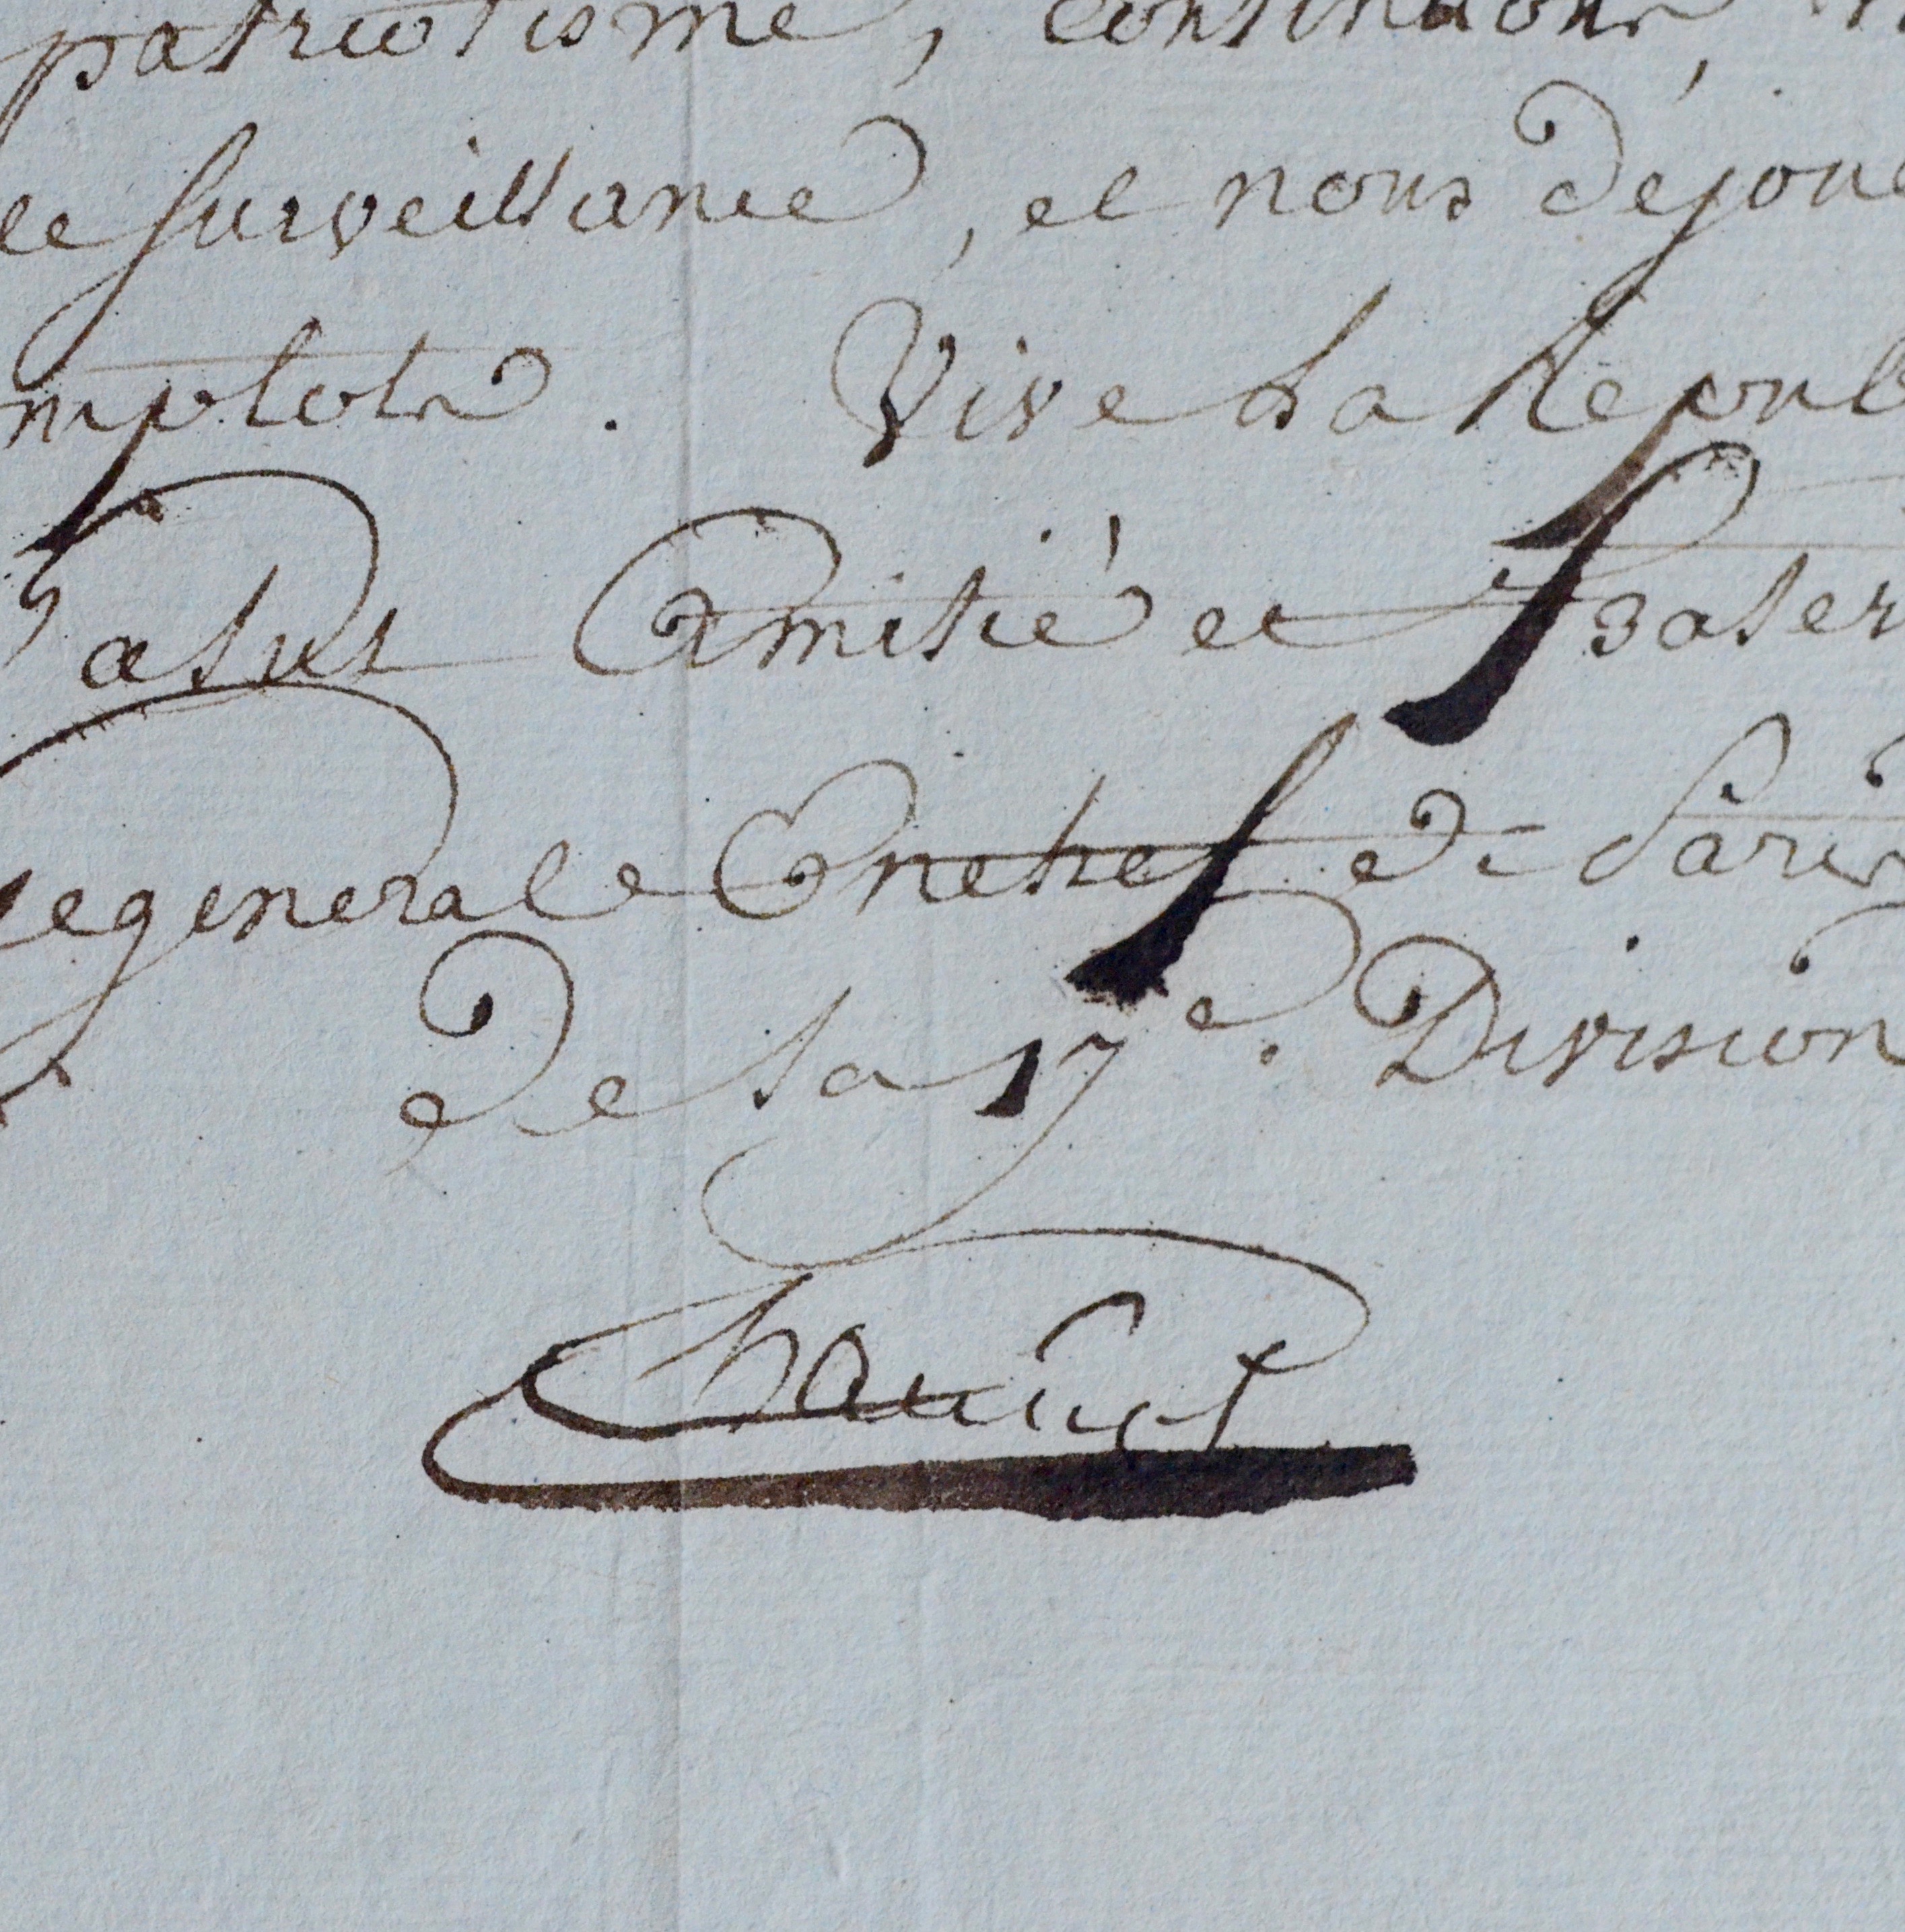 patriotisme, continuons,
surveillance, et nous dejoue
mplots. Vive La Repub
Salut Amitié et frater
Le general Enchef de Paris
De la 17e. Division
Chauvet